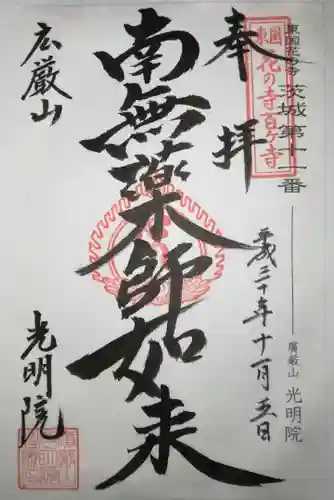 東国花の寺 茨城第十一番
廣厳山 光明院
東国
花の寺百ヶ寺
奉拝
平成三十年十一月五日
南無薬師如来
広厳山
光明院